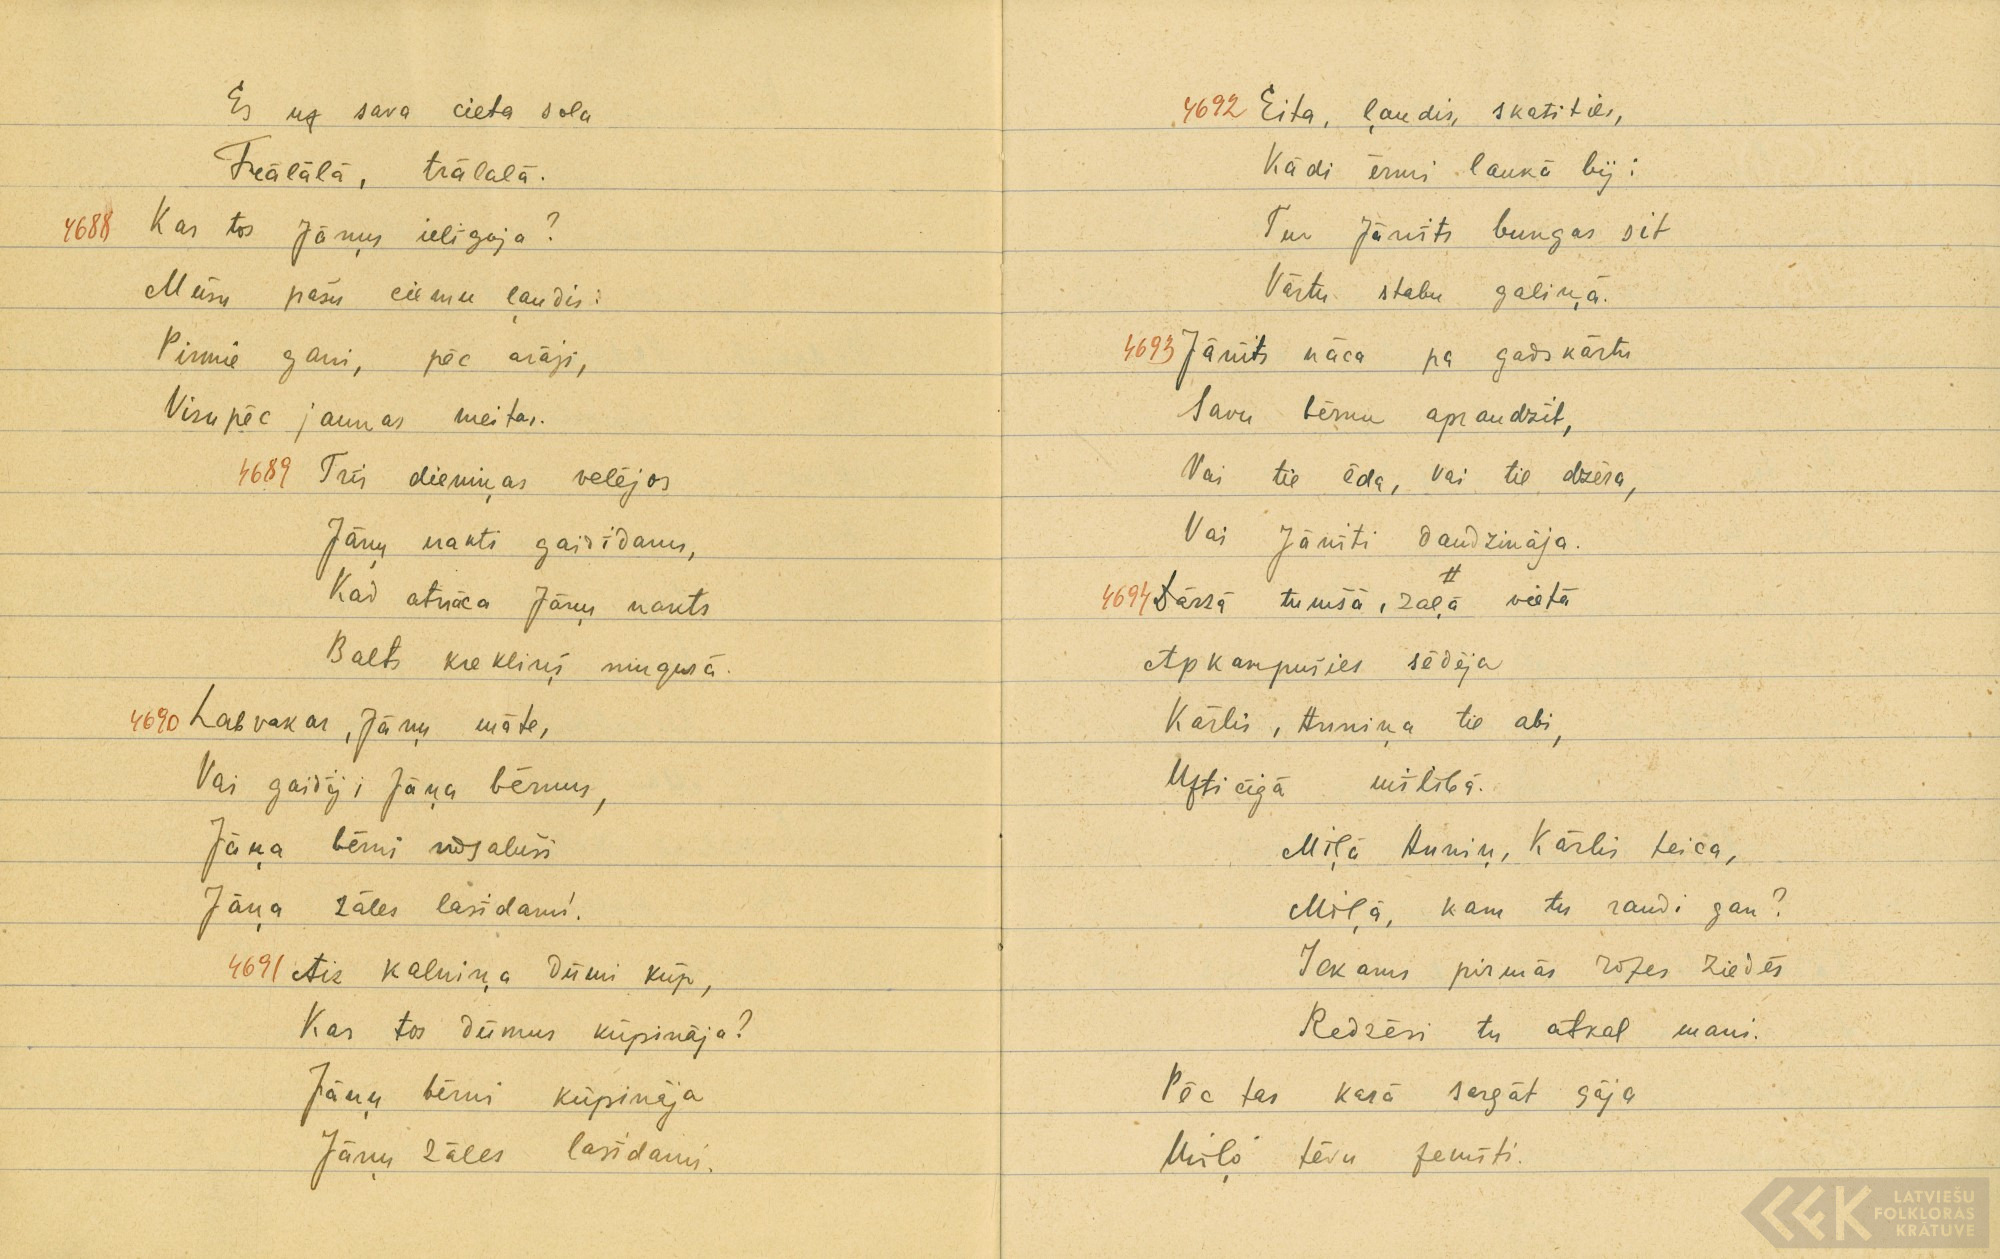 Es uz sava cieta sola
Trālālā, trālalā.
4688 Kas tos Jāņus ielīgoja?
Mūsu pašu ciemu ļaudis:
Pirmie gani, pēc arāji,
Visupēc jaunas meitas.
4689 Trīs dieniņas velējos
Jāņu nakti gaidīdams,
Kad atnāca Jāņu nakts
Balts krekliņš mugurā.
4690 Labvakar, Jāņu māte,
Vai gaidīji Jāņa bērnus,
Jāņa bērni nosaluši
Jāņa zāles lasīdami.
4691 Aiz kalniņa dūmi kūp,
Kas tos dūmus kūpināja?
Jāņu bērni kūpināja
Jāņu zāles lasīdami.
4692 Eita, ļaudis, skatīties,
Kādi ērmi laukā bij:
Tur Jānīts bungas sit
Vārtu stabu galiņā.
4693 Jānīts nāca pa gadskārtu
Savu bērnu apraudzīt,
Vai tie ēda, vai tie dzēra,
Vai Jānīti daudzināja.
4694 Dārzā tumšā, zaļā vietā
Apkampušies sēdēja
Kārlis, Anniņa tie abi,
Uzticīgā mīlībā.
Mīļā Anniņ, Kārlis teica,
Mīļā, kam tu raudi gan?
Iekams pirmās rozes ziedēs
Redzēsi tu atkal mani.
Pēc tas karā sargāt gāja
Mīļo tēvu zemīti.
LATVIEŠU
FOLKLORAS
KRĀTUVE